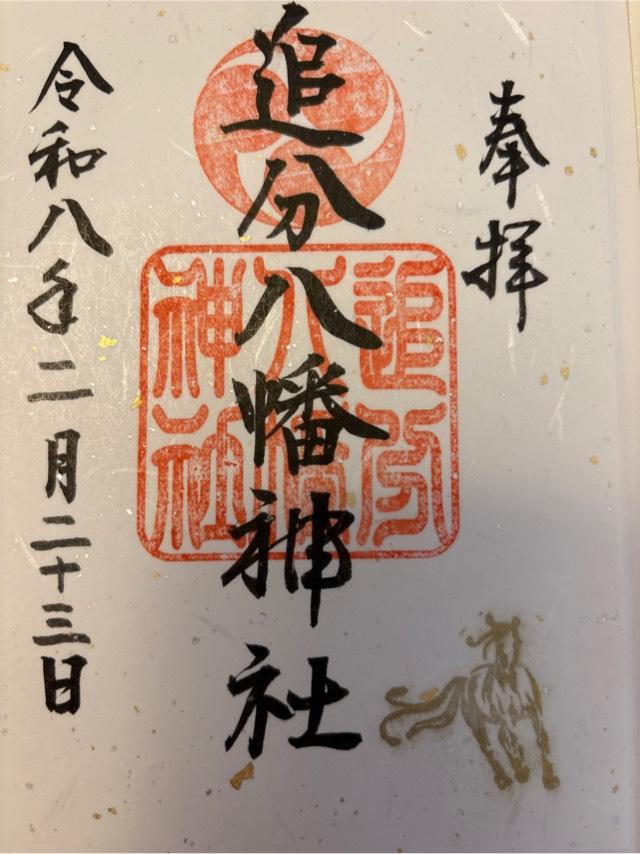 奉拝
追分八幡神社
追分
八幡
神社
令和八年二月二十三日